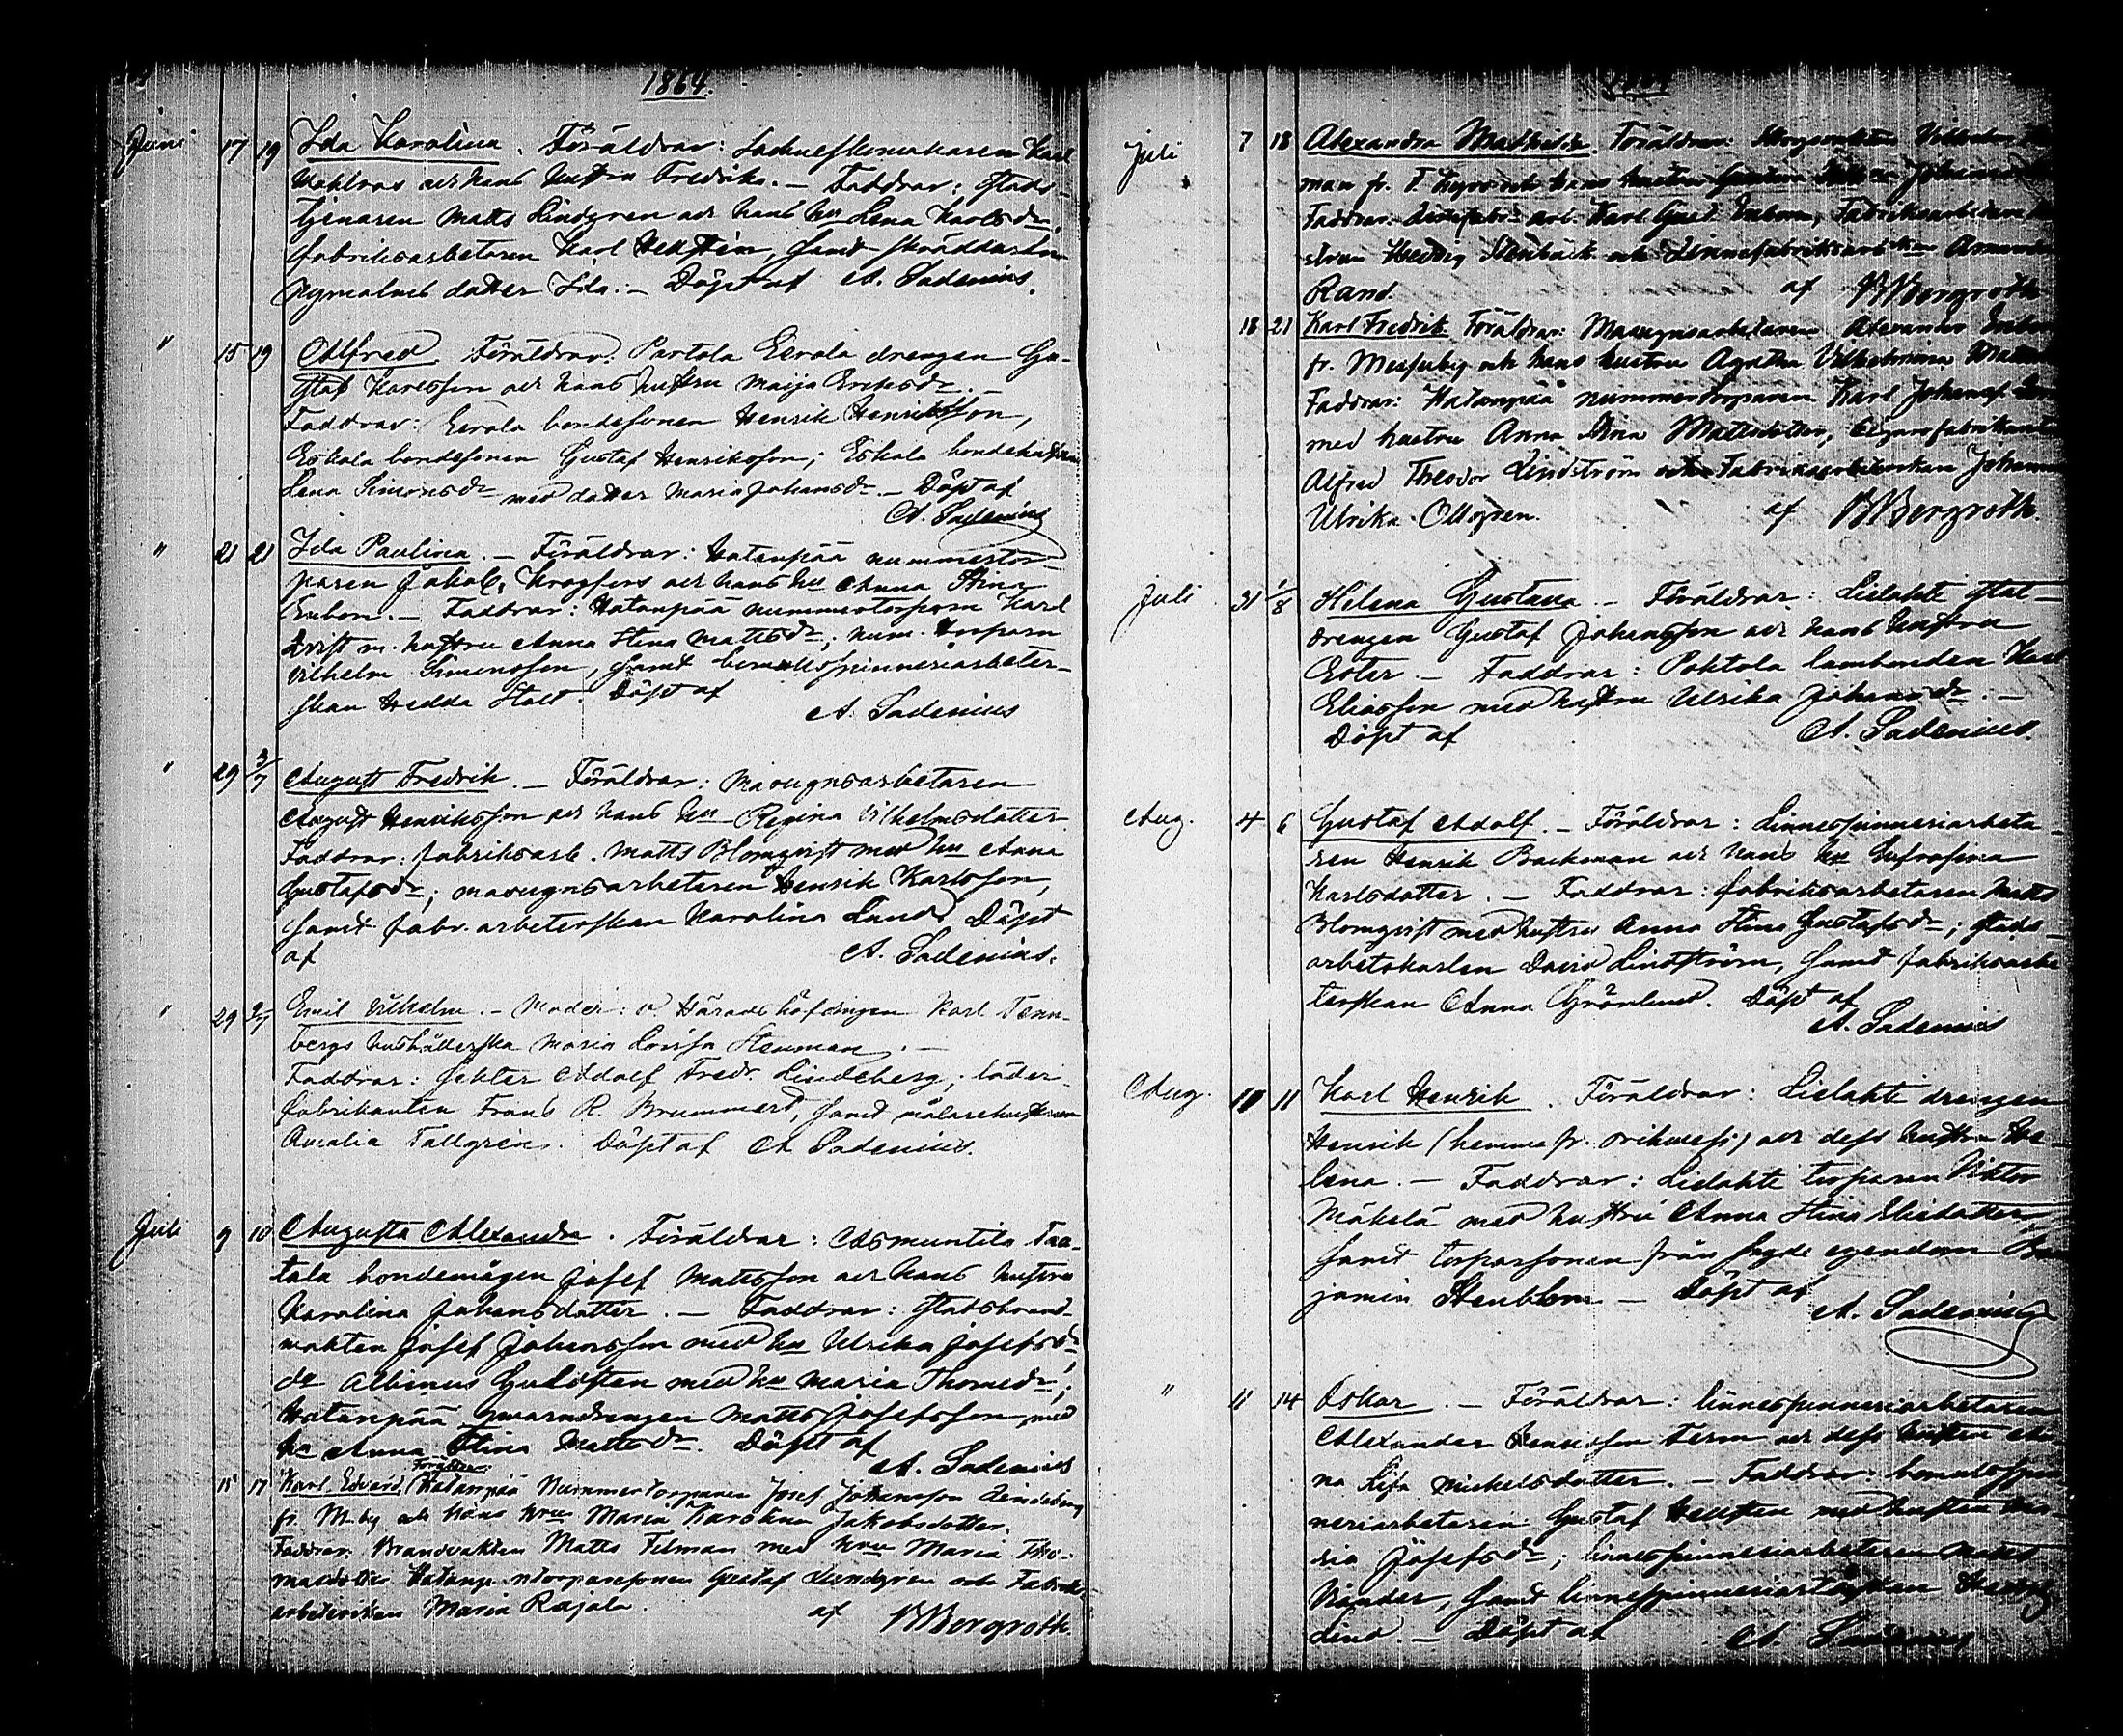 1864.
Juni 17 19 Ida Karolina. Föräldrar: Karl
och hans hustru Fredrika. — Faddrar: Stads-
tjenaren Matts Lindgren och hans hu Lena Karlsdr,
fabriksarbetaren Karl Hellstén, samt
dotter Ida. — Döpt af A. Sadenius.
" 15 19 Alfred. Föräldrar: Partola Eerola drengen Gu-
staf Karlsson och hans hustru Maija Eriksdr. —
Faddrar: Eerola bondesonen Henrik Henriksson,
Eskola bondesonen Gustaf Henriksson; Eskola
Lena Simonsdr med dotter Maria Johansdr. — Döpt af
A. Sadenius
" 21 21 Ida Paulina. — Föräldrar: Hatanpää nummertor-
paren Jakob Krogfors och hans hu Anna Stina
Enbom. — Faddrar: Hatanpää nummertorparn Karl
Qvist m. hustru Anna Stina Mattsdr; num. torparn
Vilhelm Simonsson, samt bomullsspinneriarbeter-
skan Hedda Stolt. Döpt af
A. Sadenius
" 29 3/7 August Fredrik. — Föräldrar: Masugnsarbetaren
August Henriksson och hans hu Regina Vilhelmsdotter.
Faddrar: fabriksarb. Matts Blomqvist med hu Anna
Gustafsdr; masugnsarbetaren Henrik Karlsson,
samt fabr. arbeterskan Karolina Lund. Döpt
af A. Sadenius.
" 29 3/7 Emil Vilhelm. — Moder: v Häradshöfdingen Karl Tenn-
bergs hushållerska Maria Lovisa Stenman. —
Faddrar: Adolf Fredr. Lindeberg; läder-
fabrikanten Frans R. Brummert, samt målarehustrun
Amalia Tallgrén. Döpt af A. Sadenius.
Juli 9 10 Augusta Alexandra. Föräldrar: Asmuntila Taa-
tala bondemågen Josef Mattsson och hans hustru
Karolina Johansdotter. — Faddrar: Stadsbrand-
vakten Josef Johansson med hu Ulrika Josefsdr,
do Albinus med hu Maria Thomasdr;
Hatanpää qvarndrengen Matts Josefsson med
hu Anna Stina Mattsdr. Döpt af
A. Sadenius
15 17 Karl Edvard. Föräldrar: Hatanpää Nummertorparen Josef Johansson Lindeberg
fr. M.by och hans hru Maria Karolina Jakobsdotter.
Faddrar: Brandvakten Matts Filman med hru Maria Tho-
masdotter Hatanp. ntorparesonen Gustaf Lundgren och Fabriks-
arbeterskan Maria Rajala. af BBergroth.
Juli 7 18 Alexandra Mathilda. Föräldrar:
man fr. T. Kyro och hans hustru
Faddrar: arb. Karl Gust. Enbom, Fabriksarbetare
Hedvig Stenbäck och Linnefabriksarb
Rand. af BBergroth
18 21 Karl Fredrik. Föräldrar: Masugnsarbetaren Alexander Enbom
fr. Messuby och hans hustru Agatha Vilhelmina
Faddrar: Hatanpää nummertorparen Karl Johansf.
med hustru Anna Stina Mattsdotter, Cigarrfabrikanten
Alfred Theodor Lindström och Fabriksarbeterskan Johanna
Ulrika Ollogren. af BBergroth.
Juli 31 1/8 Helena Gustava. — Föräldrar: Lielahti stat-
drengen Gustaf Johansson och hans hustru
Ester. — Faddrar: Pohtola lambonden Karl
Eliasson med hustru Ulrika Johansdr. —
Döpt af A. Sadenius.
Aug. 4 6 Gustaf Adolf. — Föräldrar: Linnespinneriarbeta-
ren Henrik Backman och hans hu Eufrosina
Karlsdotter. — Faddrar: fabriksarbetaren Matts
Blomqvist med hustru Anna Stina Gustafsdr; stads-
arbetskarlen David Lindström, samt fabriksarbe-
terskan Anna Grönlund. Döpt af
A. Sadenius
Aug. 10 11 Karl Henrik. Föräldrar: Lielahti drengen
Henrik (hemma fr. Orihvesi) och dess hustru He-
lena. — Faddrar: Lielahti torparen Viktor
Mäkelä med hustru Anna Stina Eliedotter,
samt torparsonen från egendom Ben-
jamin Stenblom — Döpt af
A. Sadenius
" 11 14 Oskar. — Föräldrar: linnespinneriarbetaren
Alexander Term och dess hustru An-
na Lisa Mickelsdotter. — Faddrar: bomullsspin-
neriarbetaren Gustaf Hellsten med hustru Ma-
ria Josefsdr; linnespinneriarbetaren Matts
Nander, samt linnespinneriarb Hedvig
Lind. — Döpt af A. Sadenius